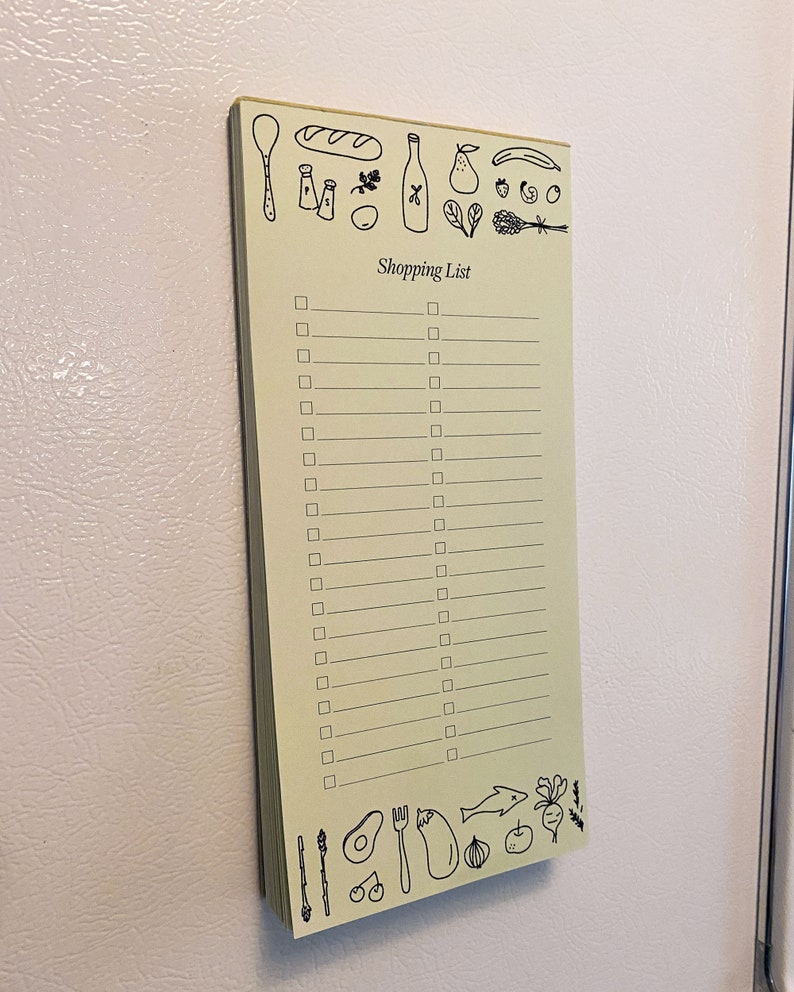 P
S
Shopping List